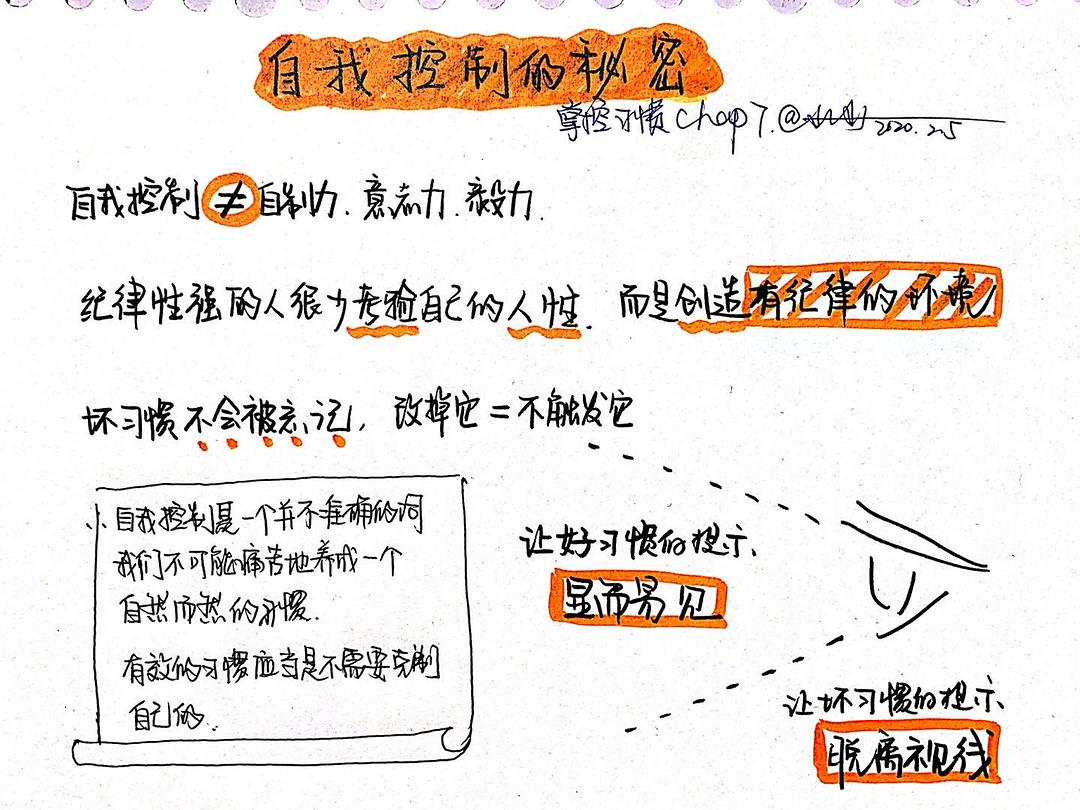 自我控制的秘密.
掌控习惯Chap7.@
2020.2.5
自我控制≠自制力、意志力、毅力.
纪律性强的人很少考验自己的人性. 而是创造有纪律的环境
坏习惯不会被忘记, 改掉它=不触发它
自我控制是一个并不准确的词
我们不可能痛苦地养成一个
自然而然的习惯.
有效的习惯应当是不需要克制
自己的.
让好习惯的提示、
显而易见
让坏习惯的提示、
脱离视线